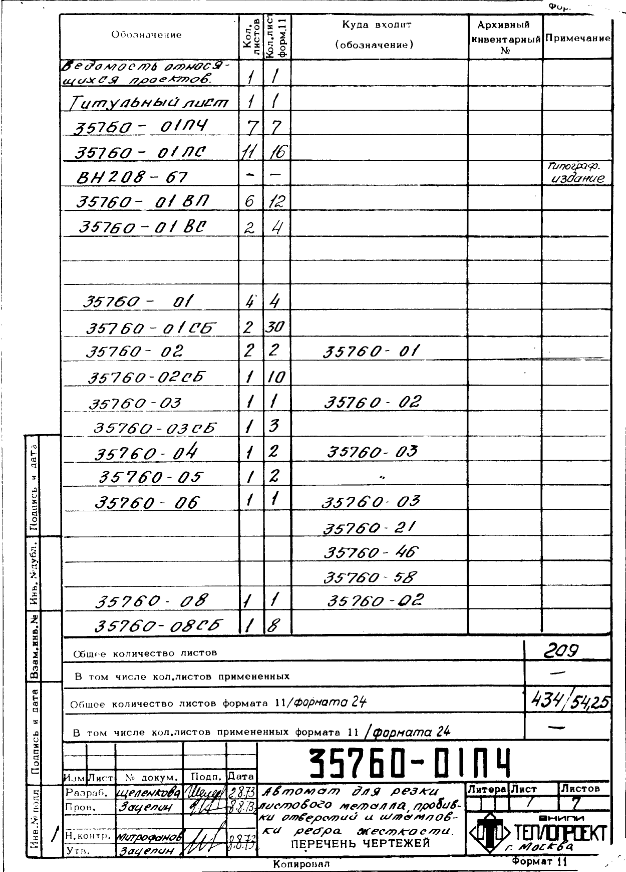 Фор
Обозначение Кол. листов Кол. лист форм. 11 Куда входит (обозначение) Архивный инвентарный № Примечание
Ведомость относя-
щихся проектов. 1 1
Титульный лист 1 1
35760-01ПЧ 7 7
35760-01ПС 11 16
ВН208-67 – – Типограф. издание
35760-01ВП 6 12
35760-01ВС 2 4
35760-01 4 4
35760-01СБ 2 30
35760-02 2 2 35760-01
35760-02СБ 1 10
35760-03 1 1 35760-02
35760-03СБ 1 3
35760-04 1 2 35760-03
35760-05 1 2 "
35760-06 1 1 35760-03
35760-21
35760-46
35760-58
35760-08 1 1 35760-02
35760-08СБ 1 8
Общее количество листов 209
В том числе кол.листов примененных —
Общее количество листов формата 11/формата 24 434/54,25
В том числе кол.листов примененных формата 11 /формата 24 —
Подпись и дата
Инв. № дубл.
Взам.инв.№
Подпись и дата
Инв.№ подл
35760-01ПЧ
Изм Лист № докум. Подп. Дата
Разраб. Щеленкова 2.8.73
Пров. Зацепин
Н.контр. Митрофанов
Утв. Зацепин
Автомат для резки
листового металла, пробив-
ки отверстий и штампов-
ки ребра жесткости.
ПЕРЕЧЕНЬ ЧЕРТЕЖЕЙ
Литера Лист Листов
1 7
ВНИПИ
ТЕПЛОПРОЕКТ
г. Москва
Копировал Формат 11